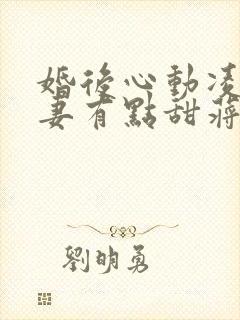 婚後心動凌
妻有點甜蔣
劉明勇